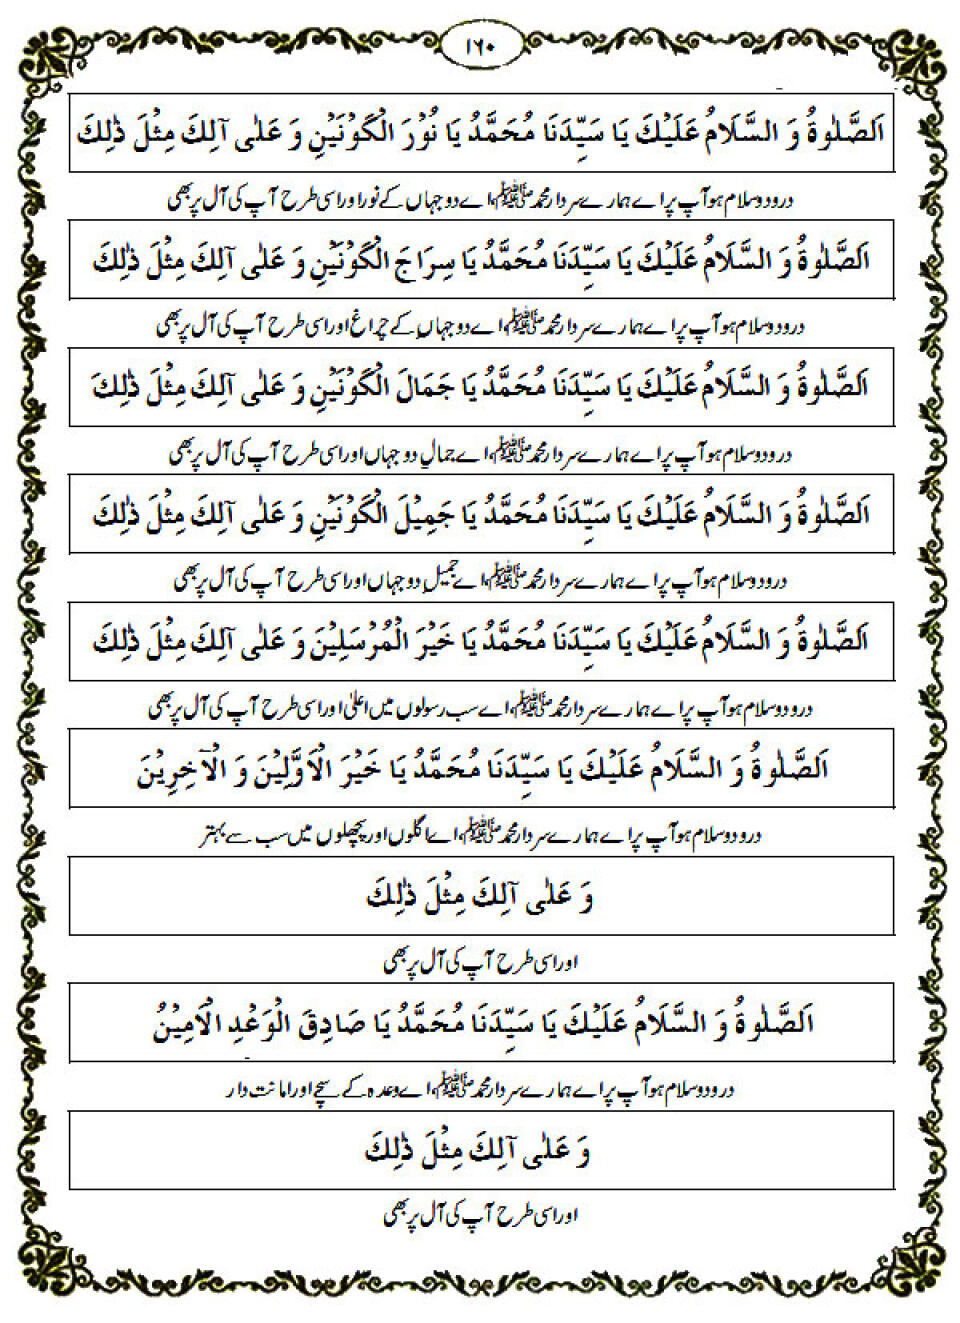 ۱۶۰
اَلصَّلٰوةُ وَ السَّلَامُ عَلَيْكَ يَا سَيِّدَنَا مُحَمَّدُ يَا نُوْرَ الْكَوْنَيْنِ وَ عَلٰى آلِكَ مِثْلَ ذٰلِكَ
درود و سلام ہو آپ پر اے ہمارے سردار محمد ﷺ، اے دو جہاں کے نور اور اسی طرح آپ کی آل پر بھی
اَلصَّلٰوةُ وَ السَّلَامُ عَلَيْكَ يَا سَيِّدَنَا مُحَمَّدُ يَا سِرَاجَ الْكَوْنَيْنِ وَ عَلٰى آلِكَ مِثْلَ ذٰلِكَ
درود و سلام ہو آپ پر اے ہمارے سردار محمد ﷺ، اے دو جہاں کے چراغ اور اسی طرح آپ کی آل پر بھی
اَلصَّلٰوةُ وَ السَّلَامُ عَلَيْكَ يَا سَيِّدَنَا مُحَمَّدُ يَا جَمَالَ الْكَوْنَيْنِ وَ عَلٰى آلِكَ مِثْلَ ذٰلِكَ
درود و سلام ہو آپ پر اے ہمارے سردار محمد ﷺ، اے جمالِ دو جہاں اور اسی طرح آپ کی آل پر بھی
اَلصَّلٰوةُ وَ السَّلَامُ عَلَيْكَ يَا سَيِّدَنَا مُحَمَّدُ يَا جَمِيْلَ الْكَوْنَيْنِ وَ عَلٰى آلِكَ مِثْلَ ذٰلِكَ
درود و سلام ہو آپ پر اے ہمارے سردار محمد ﷺ، اے جمیلِ دو جہاں اور اسی طرح آپ کی آل پر بھی
اَلصَّلٰوةُ وَ السَّلَامُ عَلَيْكَ يَا سَيِّدَنَا مُحَمَّدُ يَا خَيْرَ الْمُرْسَلِيْنَ وَ عَلٰى آلِكَ مِثْلَ ذٰلِكَ
درود و سلام ہو آپ پر اے ہمارے سردار محمد ﷺ، اے سب رسولوں میں اعلیٰ اور اسی طرح آپ کی آل پر بھی
اَلصَّلٰوةُ وَ السَّلَامُ عَلَيْكَ يَا سَيِّدَنَا مُحَمَّدُ يَا خَيْرَ الْاَوَّلِيْنَ وَ الْاٰخِرِيْنَ
درود و سلام ہو آپ پر اے ہمارے سردار محمد ﷺ، اے اگلوں اور پچھلوں میں سب سے بہتر
وَ عَلٰى آلِكَ مِثْلَ ذٰلِكَ
اور اسی طرح آپ کی آل پر بھی
اَلصَّلٰوةُ وَ السَّلَامُ عَلَيْكَ يَا سَيِّدَنَا مُحَمَّدُ يَا صَادِقَ الْوَعْدِ الْاَمِيْنُ
درود و سلام ہو آپ پر اے ہمارے سردار محمد ﷺ، اے وعدہ کے سچے اور امانت دار
وَ عَلٰى آلِكَ مِثْلَ ذٰلِكَ
اور اسی طرح آپ کی آل پر بھی